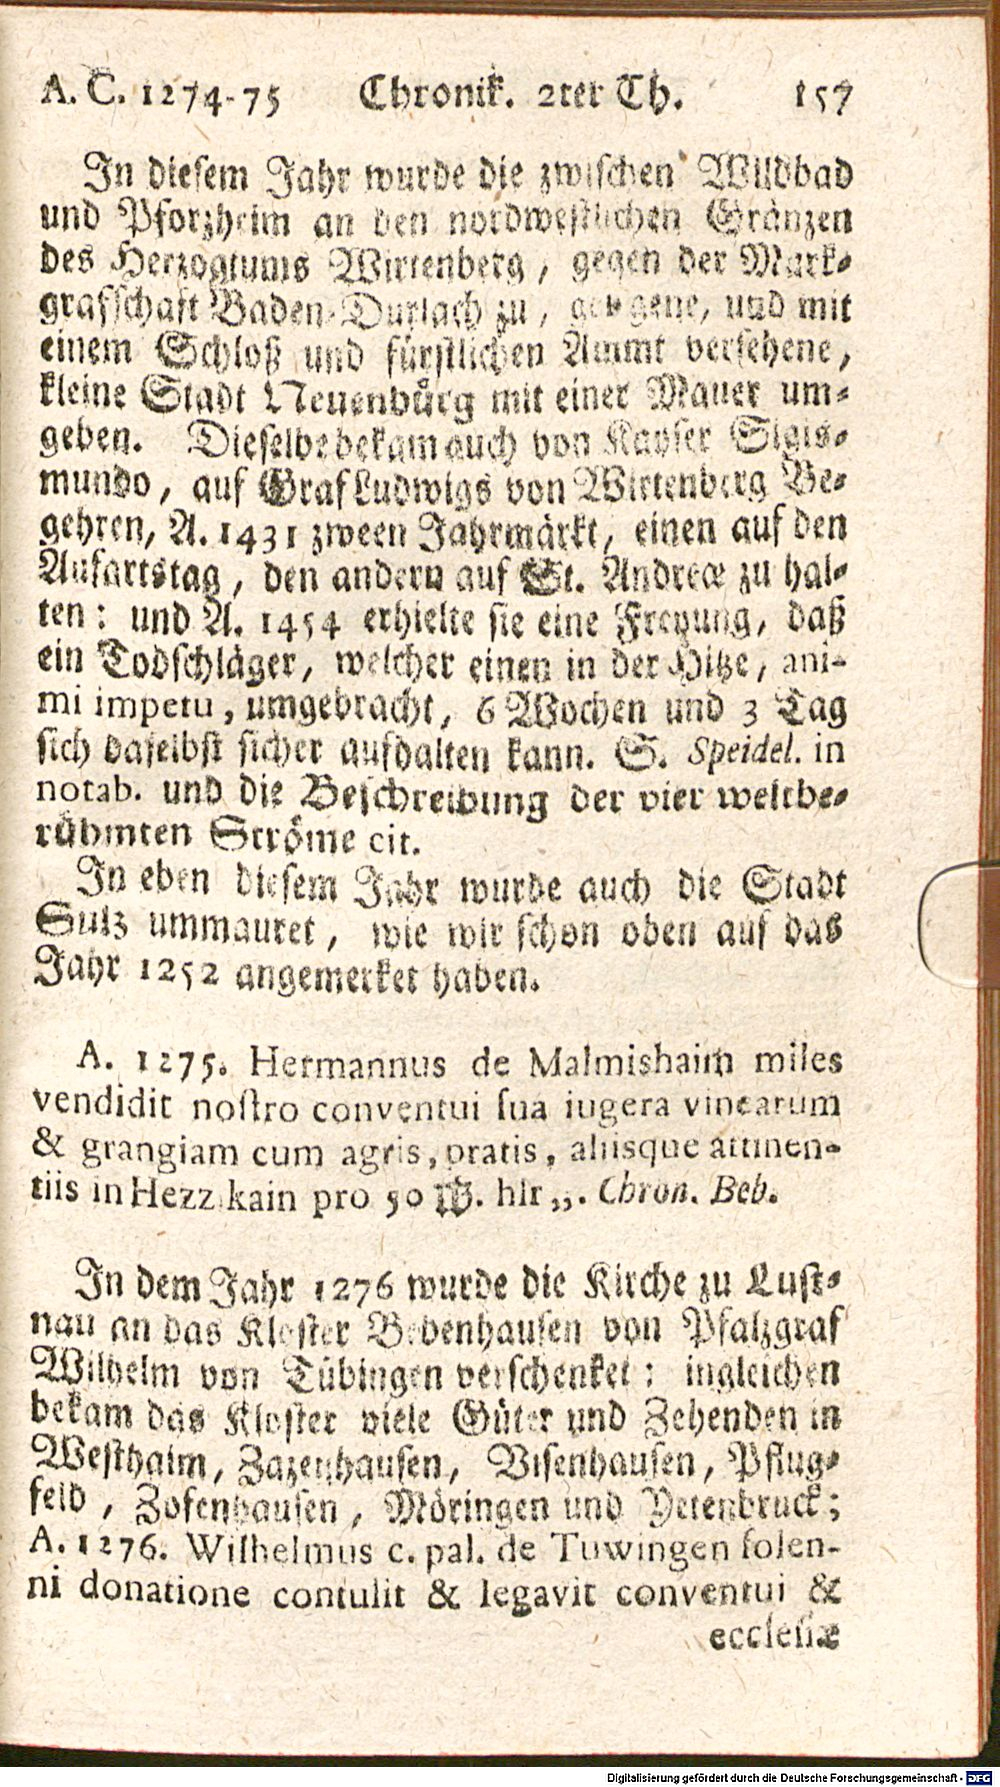 A. C. 1274-75 Chronik. 2ter Th. 157
In diesem Jahr wurde die zwischen Wildbad
und Pforzheim an den nordwestlichen Gränzen
des Herzogtums Wirtenberg, gegen der Mark-
grafschaft Baden-Durlach zu, gelegene, und mit
einem Schloß und fürstlichen Ammt versehene,
kleine Stadt Neuenbürg mit einer Mauer um-
geben. Dieselbe bekam auch von Kayser Sigis-
mundo, auf Graf Ludwigs von Wirtenberg Be-
gehren, A. 1431 zween Jahrmärkt, einen auf den
Aufartstag, den andern auf St. Andreæ zu hal-
ten: und A. 1454 erhielte sie eine Freyung, daß
ein Todschläger, welcher einen in der Hitze, ani-
mi impetu, umgebracht, 6 Wochen und 3 Tag
sich daselbst sicher aufhalten kann. S. Speidel. in
notab. und die Beschreibung der vier weltbe-
rühmten Ströme cit.
In eben diesem Jahr wurde auch die Stadt
Sulz ummauret, wie wir schon oben auf das
Jahr 1252 angemerket haben.
A. 1275. Hermannus de Malmishaim miles
vendidit noſtro conventui ſua iugera vinearum
& grangiam cum agris, pratis, aliisque attinen-
tiis in Hezzikain pro 50 ℔. hlr„. Chron. Beb.
In dem Jahr 1276 wurde die Kirche zu Lust-
nau an das Kloster Bebenhausen von Pfalzgraf
Wilhelm von Tübingen verschenket: ingleichen
bekam das Kloster viele Güter und Zehenden in
Westhaim, Zazenhausen, Visenhausen, Pflug-
feld, Zofenhausen, Möringen und Yetenbruck;
A. 1276. Wilhelmus c. pal. de Tuwingen ſolen-
ni donatione contulit & legavit conventui &
eccleſiæ
Digitalisierung gefördert durch die Deutsche Forschungsgemeinschaft - DFG